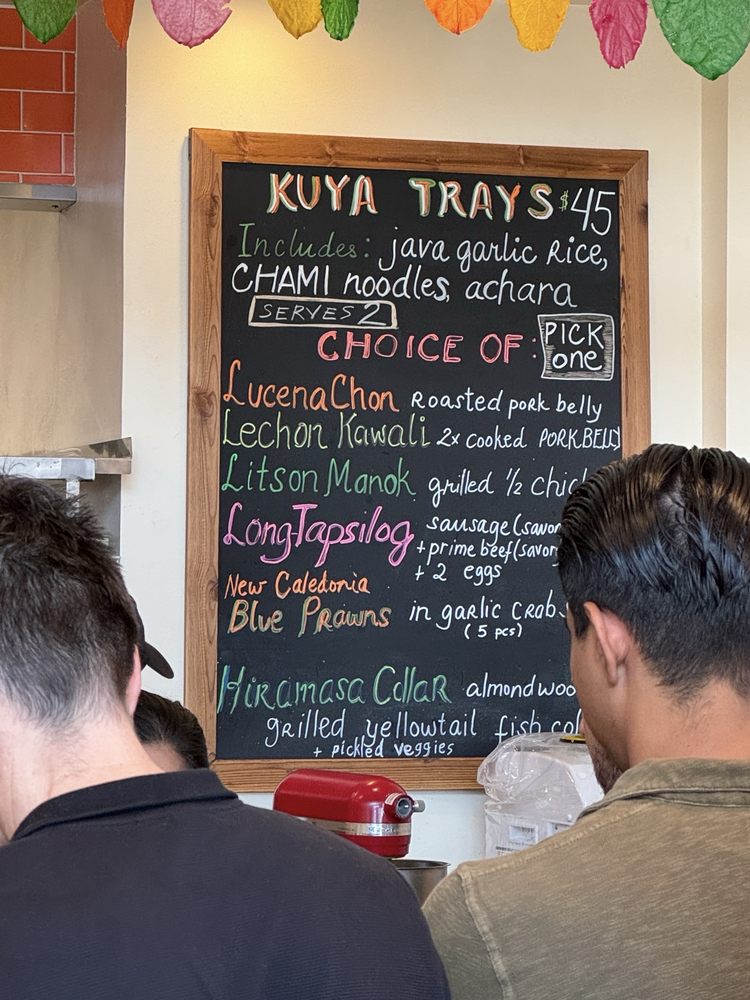 KUYA TRAYS $45
Includes: java garlic Rice,
CHAMI noodles, achara
SERVES 2
CHOICE OF: PICK one
LucenaChon Roasted pork belly
Lechon Kawali 2x cooked PORK BELLY
Litson Manok grilled 1/2
LongTapsilog sausage
+ prime beef
+ 2 eggs
New Caledonia
Blue Prawns in garlic
(5 pcs)
Hiramasa Collar
grilled yellowtail fish
+ pickled veggies